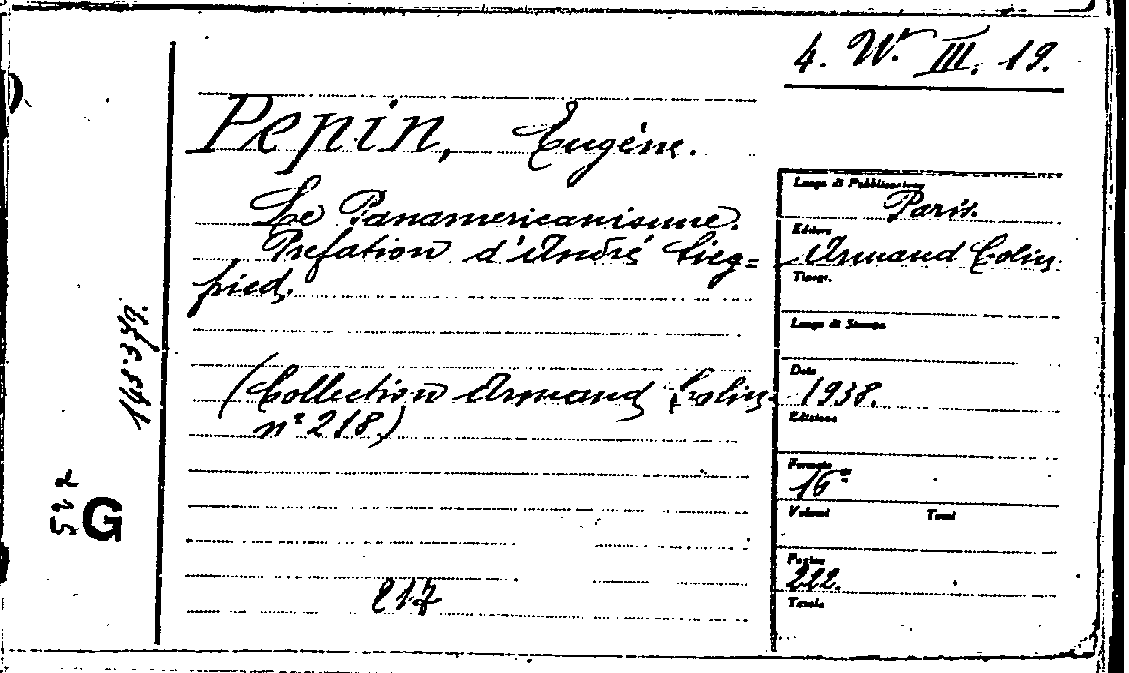 4. W. III. 19.
Pepin, Eugène.
Le Panamericanisme.
Prefation d'André Sieg=
fried.
(Collection Armand Colin
n° 218.)
217
Luogo di Pubblicazione
Paris.
Editore
Armand Colin
Tipogr.
Luogo di Stampa
Data
1938.
Edizione
Formato
16°
Volumi Tomi
Pagine
222.
Tavole
G